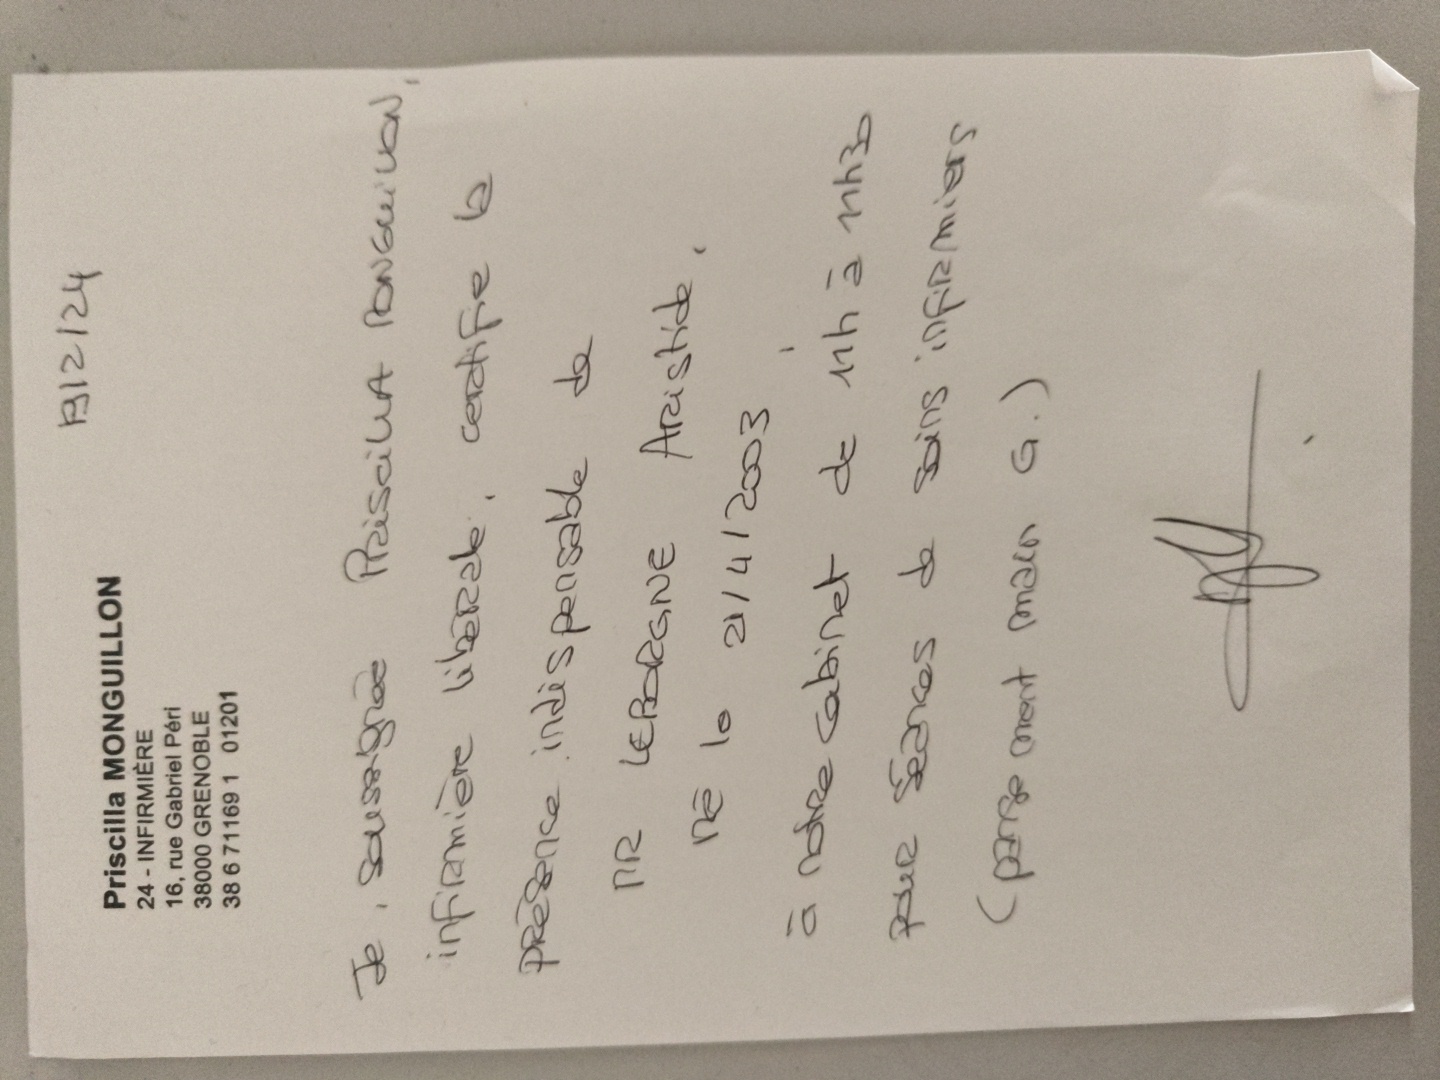 19/2/24
Priscilla MONGUILLON
24 - INFIRMIÈRE
16, rue Gabriel Péri
38000 GRENOBLE
38 6 71169 1 01201
Je, soussignée Priscilla MONGUILLON,
infirmière libérale, certifie la
présence indispensable de
MR LEBORGNE Aristide,
né le 21/4/2003,
à notre cabinet de 11h à 11h30
pour séances de soins infirmiers
(pansement main G.)